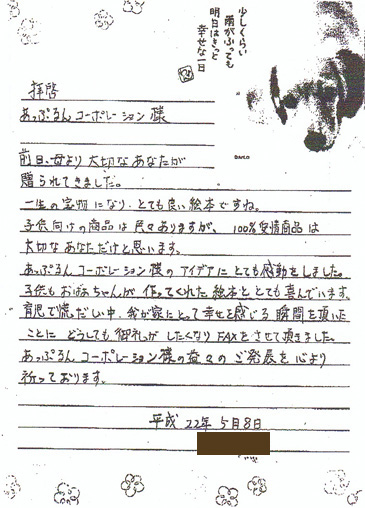 少しくらい
雨がふっても
明日はきっと
幸せな一日
拝啓
あっぷるん コーポレーション 様
前日、母より 大切なあなたが
贈られてきました。
一生の宝物 になり、とても良い絵本ですね。
子供向けの商品は 色々ありますが、 100%愛情商品 は
大切な あなただけと思います。
あっぷるん コーポレーション 様の アイデアに とても感動をしました。
子供も おばあちゃんが、作ってくれた 絵本と とても 喜んでいます。
育児で慌しい中、我が家にとって 幸せを感じる 瞬間を 頂いた
ことに どうしても 御礼が したくなり FAXを させて 頂きました。
あっぷるん コーポレーション 様の 益々の ご発展 を 心より
祈っております。
平成 22年 5月8日